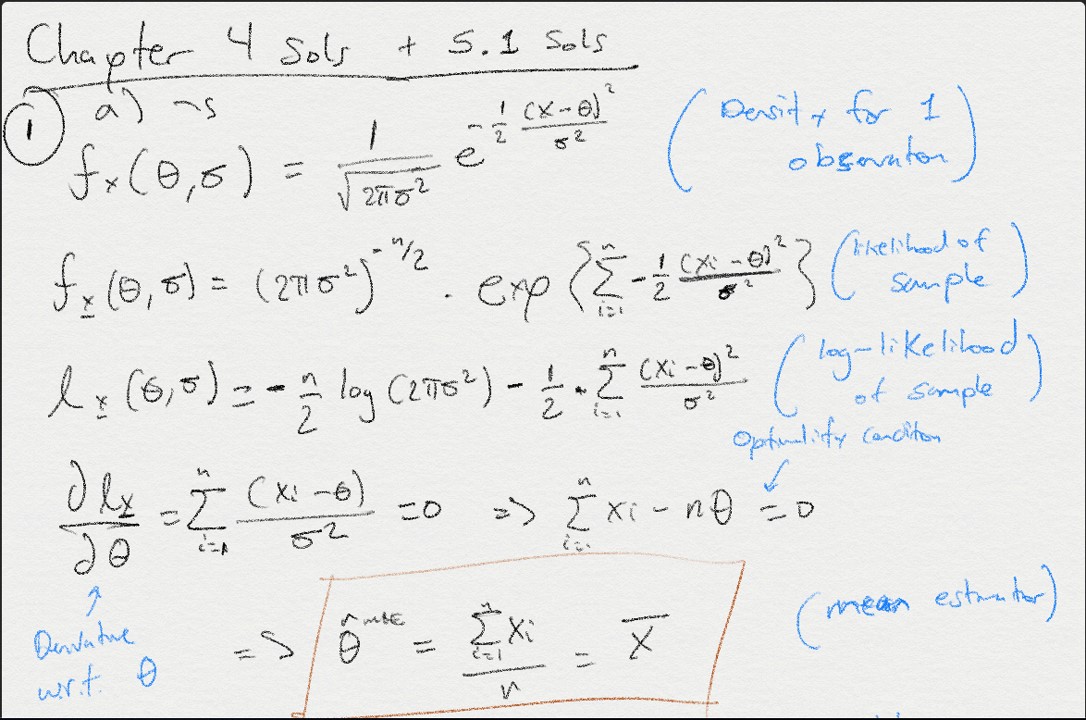 Chapter 4 Sols + 5.1 Sols
① a) ~s
f_x(θ,σ) = 1/√(2πσ²) e^(-1/2 (x-θ)²/σ²) (Density for 1 observation)
f_x(θ,σ) = (2πσ²)^(-n/2) · exp{∑_{i=1}^n -1/2 (xi-θ)²/σ²} (likelihood of sample)
l_x(θ,σ) = -n/2 log(2πσ²) - 1/2 · ∑_{i=1}^n (xi-θ)²/σ² (log-likelihood of sample)
Optimality condition
∂l_x/∂θ = ∑_{i=1}^n (xi-θ)/σ² = 0 => ∑_{i=1}^n xi - nθ = 0
Derivative w.r.t. θ
=> θ̂^MLE = ∑_{i=1}^n xi / n = X̄ (mean estimator)